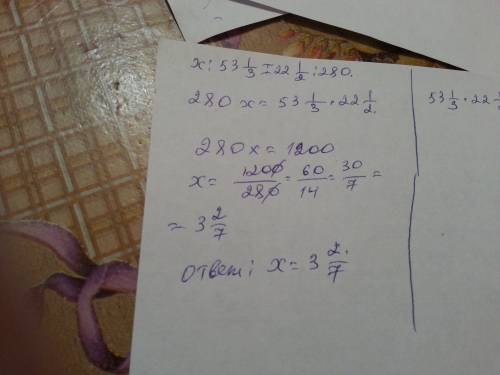 x : 53 1/3 = 22 1/2 : 280.
280 x = 53 1/3 · 22 1/2.
280x = 1200
x = 1200/280 = 60/14 = 30/7 =
= 3 2/7
ответ: x = 3 2/7
53 1/3 · 22